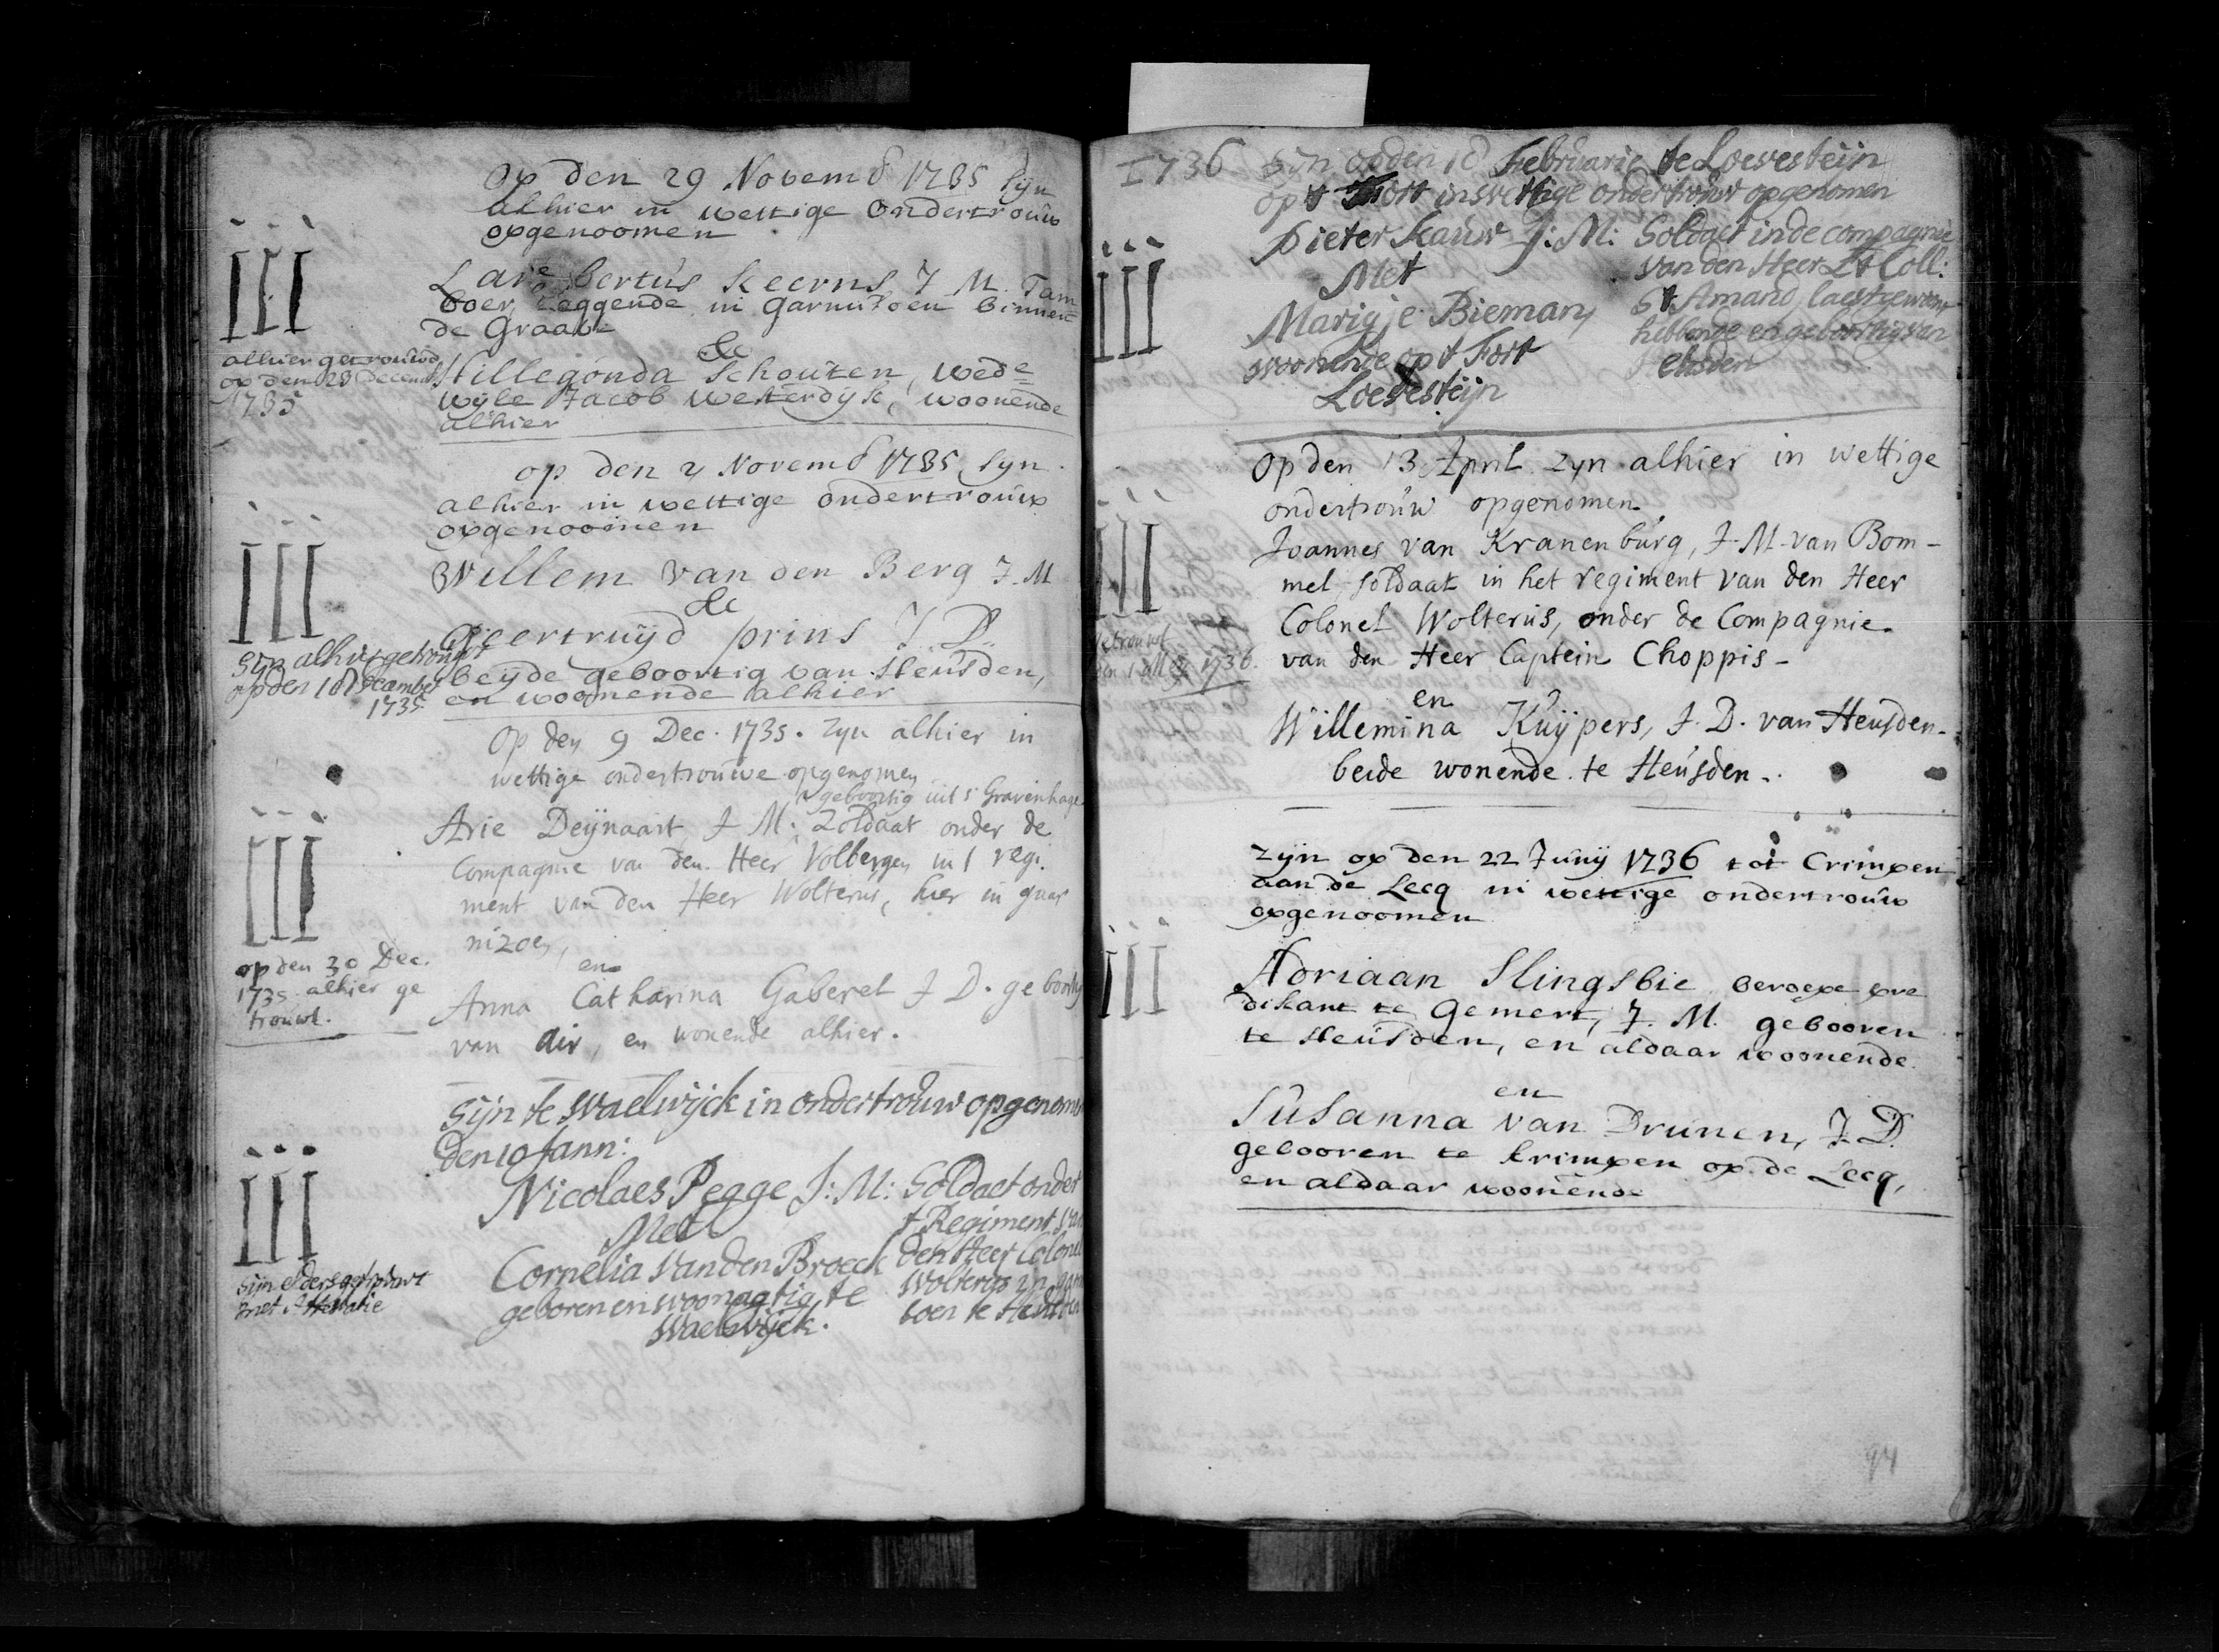 op den 29 Novemb 1735 syn
alhier in wettige ondertrouw
opgenoomen
Lambertus Keerns J M. Tam
boer, leggende in garnisoen binnen
de Graave
&
Hillegonda Schouten, wede
wyle Jacob Westerdyk, woonende
alhier
iii
III
alhier getrouwd
op den 23 decemb
1735
op den 2 Novemb 1735 syn
alhier in wettige ondertrouw
opgenoomen
Willem van den Berg J. M
&
Geertruyd prins J D.
beyde geboortig van Heusden,
en woonende alhier
iii
III
Sijn alhier getrouwt
op den 18 december
1735
Op den 9 Dec. 1735. Zyn alhier in
wettige ondertrouwe opgenomen
geboortig uit s' Gravenhage
Arie Deijnaart J M; Zoldaat onder de
Compagnie van den Heer Volbergen in 't regi.
ment van den Heer Wolterus, hier in guar
nizoen,
en
Anna Catharina Gaberel J D. geboortig
van Air, en wonende alhier.
iii
III
op den 30 Dec.
1735. alhier ge
trouwt.
Sijn te Waelwijck in ondertrouw opgenomen
den 10 Jann:
Nicolaes Pegge J: M: Soldaet onder
't Regiment van
Met
den Heer Colonel
Cornelia Van den Broeck
Wolterus in garni
geboren en woonagtig te
soen te Heusden
Waelwijck.
iii
III
Sijn elders getrouwt
met Attestatie
1736 Sijn op den 18 Februarie te Loevesteijn
op 't Fort in wettige ondertrouw opgenomen
Pieter Kauw J: M: Soldaet in de compagnie
van den Heer Lt Coll:
Met
St Amand, laest gewoont
Marigje Bieman,
hebbende en geboortig van
woonende op 't Fort
Heusden
Loevesteijn
iii
III
Op den 13 April zyn alhier in wettige
ondertrouw opgenomen.
Joannes van Kranenburg, J. M. van Bom-
mel, soldaat in het regiment van den Heer
Colonel Wolterus, onder de Compagnie
van den Heer Captein Choppis-
en
Willemina Kuijpers, J. D. van Heusden.
beide wonende te Heusden.
iii
III
getrouwt
den 1 1736.
zyn op den 22 Juny 1736 tot Crimpen
aan de Lecq in wettige ondertrouw
opgenoomen
Adriaan Slingsbie beroepe pre
dikant te Gemert, J. M. gebooren
te Heusden, en aldaar woonende
en
Susanna van Drunen, J D.
gebooren te krimpen op de Lecq,
en aldaar woonende
iii
III
94